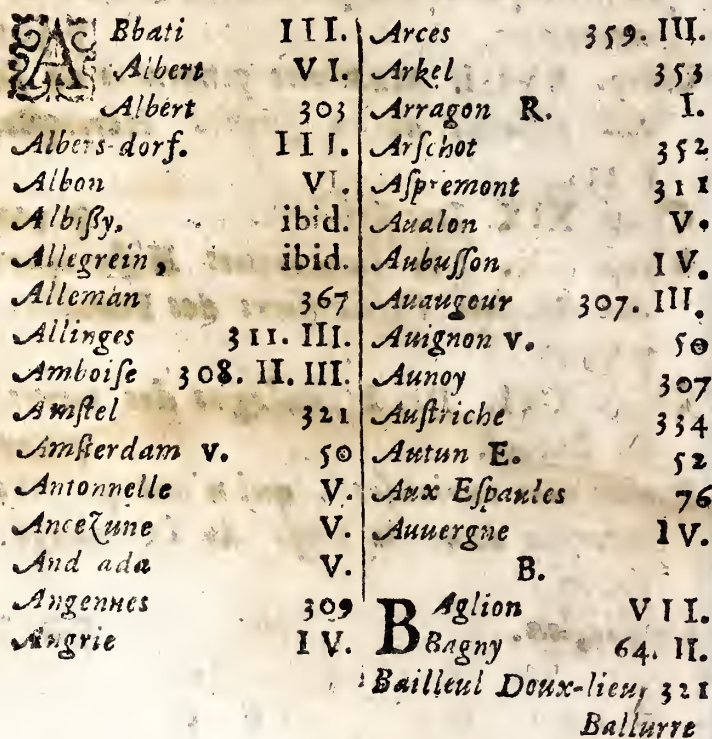 ABbati III.
Albert VI.
Albert 303
Albers-dorf. III.
Albon VI.
Albißy, ibid.
Allegrein, ibid.
Alleman 367
Allinges 311. III.
Amboiſe 308. II. III.
Amſtel 321
Amſterdam v. 50
Antonnelle V.
Anceζune V.
And ada V.
Angennes 309
Angrie IV.
Arces 359. III.
Arkel 353
Arragon R. I.
Arſchot 352
Aſpremont 311
Aualon V.
Aubuſſon IV.
Auaugour 307. III.
Auignon v. 50
Aunoy 307
Auſtriche 334
Autun E. 52
Aux Eſpaules 76
Auuergne IV.
B.
BAglion VII.
Bagny 64. II.
Bailleul Doux-lieu, 321
Ballurre